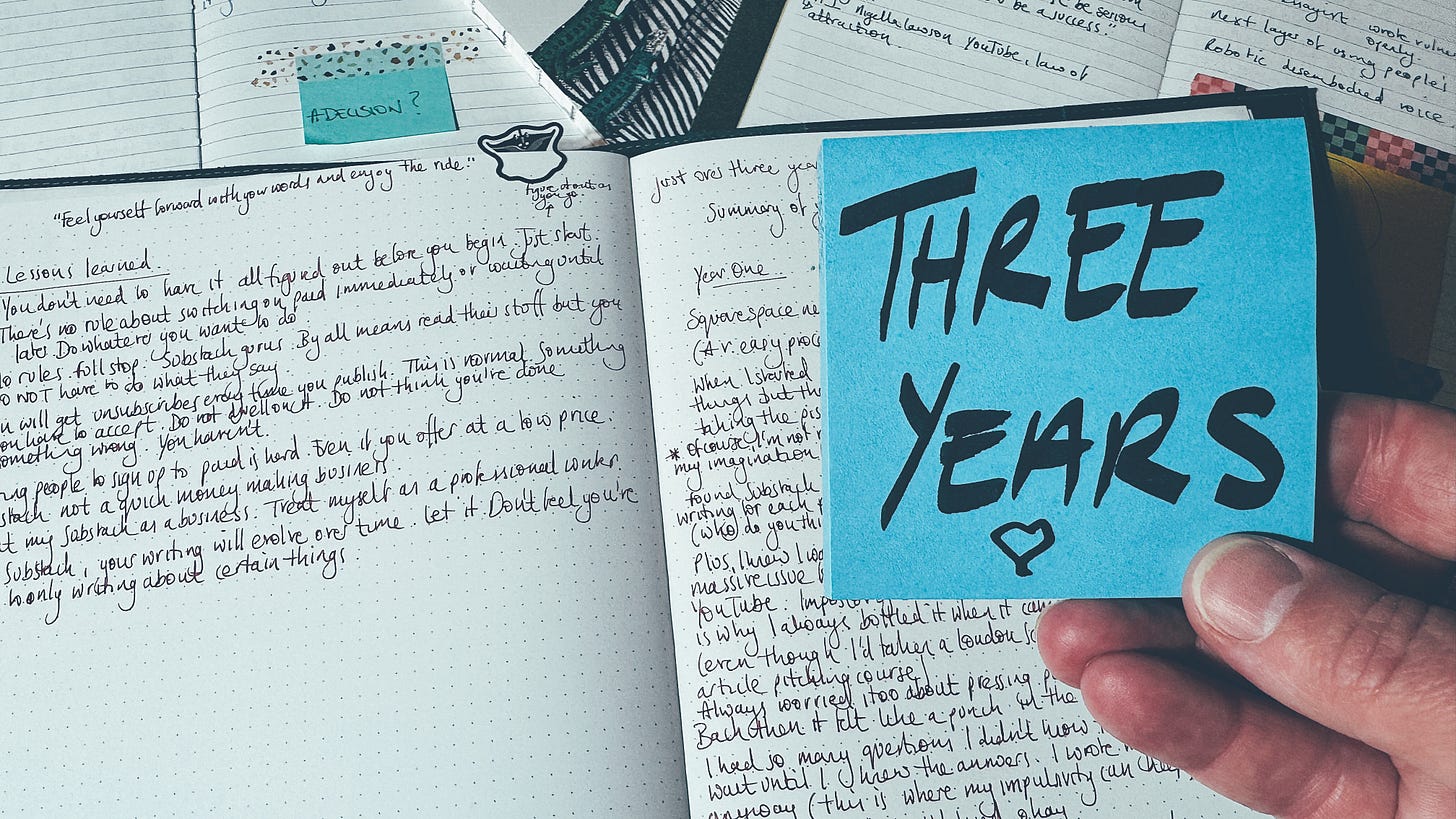 A DECISION?
be serious
be a success."
Nigella Lawson YouTube, law of
attraction.
wrote
openly.
next layer of using people's
Robotic disembodied voice
"Feel yourself forward with your words and enjoy the ride."
as
you go.
Lessons learned
You don't need to have it all figured out before you begin. Just start.
There's no rule about switching on paid immediately or waiting until
later. Do whatever you want to do
rules. full stop. Substack gurus. By all means read their stuff but you
NOT have to do what they say.
will get unsubscribes every time you publish. This is normal. Something
have to accept. Do not dwell on it. Do not think you're done
something wrong. You haven't.
people to sign up to paid is hard. Even if you offer at a low price.
not a quick money making business.
my Substack as a business. Treat myself as a professional worker.
Substack, your writing will evolve over time. Let it. Don't feel you're
only writing about certain things.
Just over three
Summary of
Year One
Squarespace
(Ar easy
When I started
things but
taking the
* of course I'm not
my imagination
found Substack
writing for each
(who do you
Plus, I knew I
massive issue
YouTube.
is why I always bottled it when it
(even though I'd taken a London
article pitching course)
Always worried too about pressing
Back then it felt like a punch in the
I had so many questions I didn't know
wait until I knew the answers. I wrote
anyway (this is where my impulsivity can
okay
THREE
YEARS